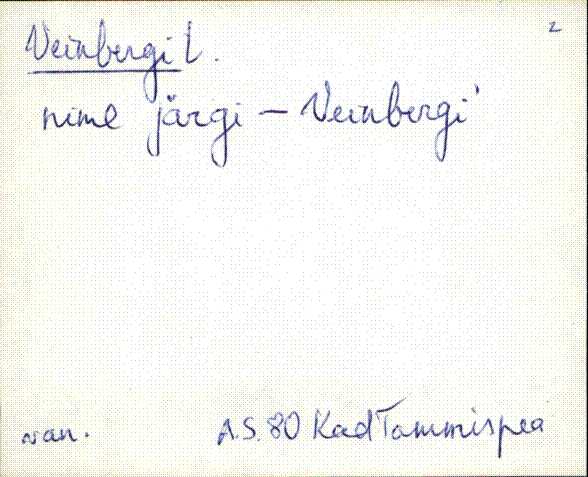 2
Veinbergi t.
nime järgi – Veinbergi
van. A.S. 80 Kad Tammispea